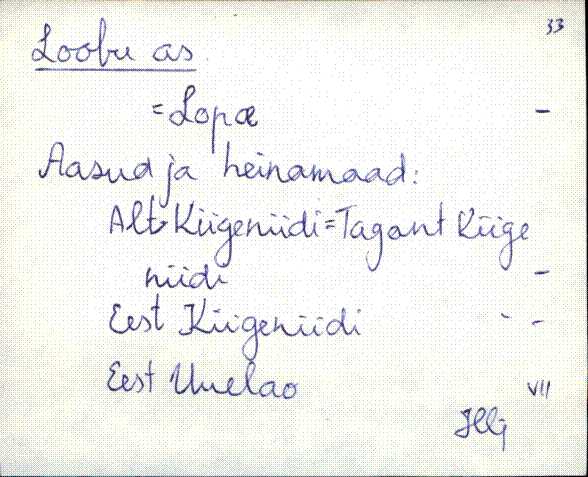 33
Loobu as
=Lopæ -
Aasud ja heinamaad:
Alt-Kiigeniidi=Tagant Kiige
niidi -
Eest Kiigeniidi - -
Eest Uuelao VII